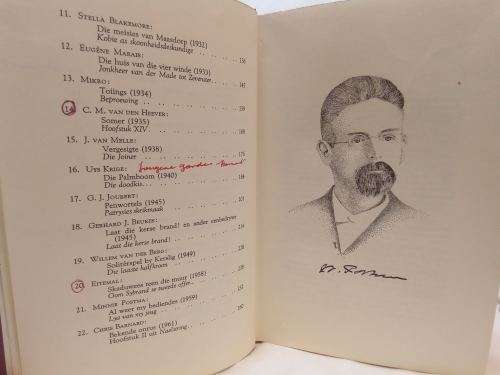 11. STELLA BLAKEMORE:
Die meisies van Maasdorp (1932)
Kobie as skoonheidsdeskundige 136
12. EUGÈNE MARAIS:
Die huis van die vier winde (1933)
Jonkheer van der Made tot Zevenster 147
13. MIKRO:
Toiings (1934)
Beproewing 159
14. C. M. VAN DEN HEEVER:
Somer (1935)
Hoofstuk XIV
15. J. VAN MELLE:
Vergesigte (1938)
Die Joiner 175
16. UYS KRIGE:
Die Palmboom (1940)
Die doodkis
17. G. J. JOUBERT:
Penwortels (1945)
Patrysies skrikmaak
18. GERHARD J. BEUKES:
Laat die kerse brand! en ander eenbedrywe
(1945)
Laat die kerse brand! 214
19. WILLEM VAN DER BERG:
Solinterspel by Kerslig (1949)
Die laaste halfkroon
20. EITEMAL:
Skaduwees teen die muur (1958)
Oom Sybrand se tweede offer
21. MINNIE POSTMA:
Al weer my bediendes (1959)
Lya van my jeug
22. CHRIS BARNARD:
Bekende onrus (1961)
Hoofstuk II uit Naslering